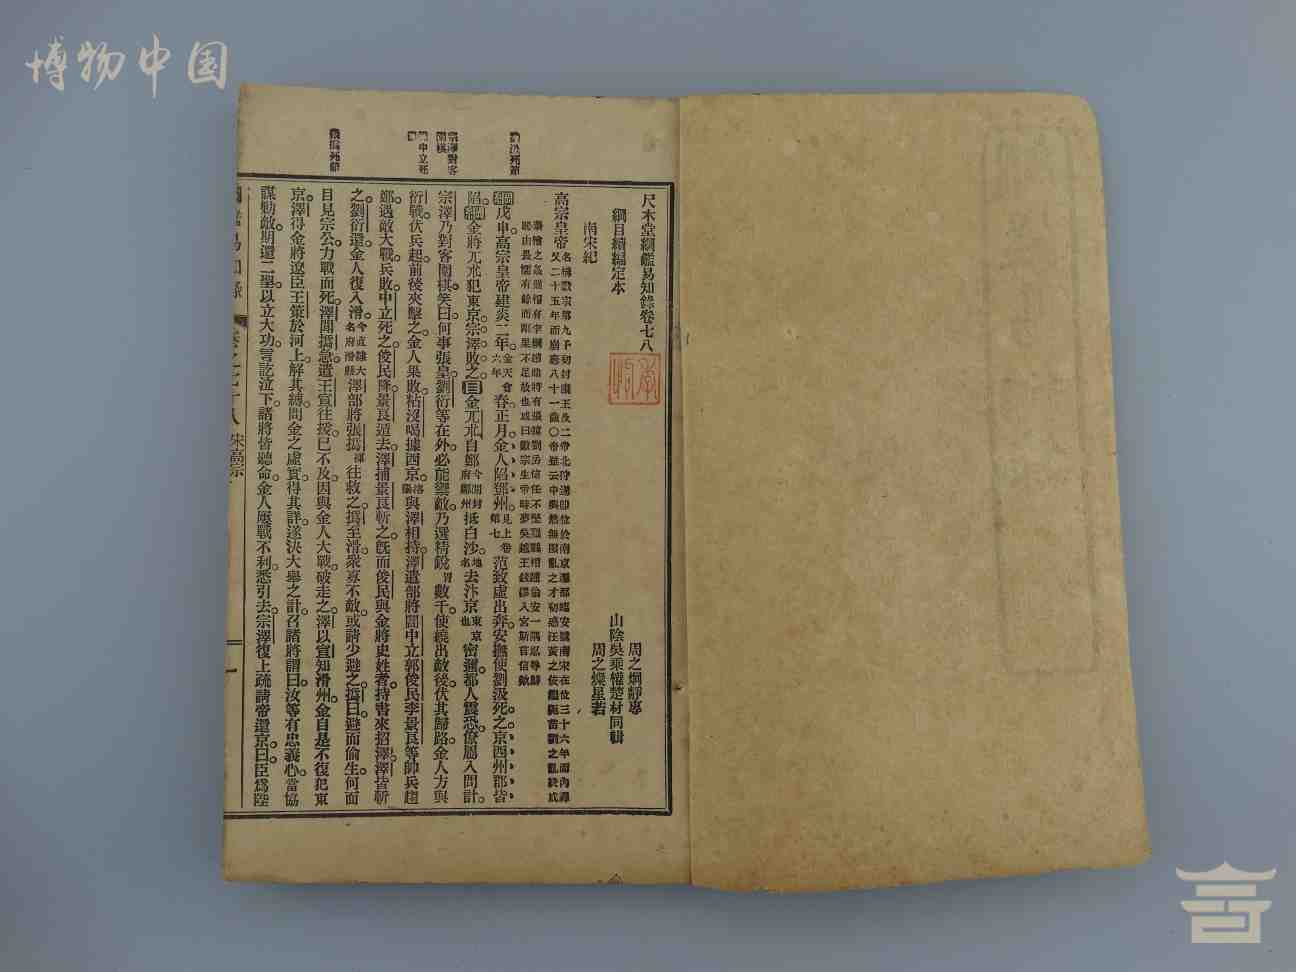 博物中国
尺木堂綱鑑易知錄卷七八
周之炯靜專
山陰吳乘權楚材同輯
周之燦星若
綱目續編定本
南宋紀
高宗皇帝
戊申高宗皇帝建炎二年金天會六年春正月金人陷鄧州見上卷第七范致虛出奔安撫使劉汲死之京西州郡皆
陷金將兀朮犯東京宗澤敗之目金兀朮自鄭今開封府鄭州抵白沙地名去汴京東京也密邇都人震恐僚屬入問計
宗澤乃對客圍棋笑曰何事張皇劉衍等在外必能禦敵乃選精銳數千使繞出敵後伏其歸路金人方與
衍戰伏兵起前後夾擊之金人果敗粘沒喝據西京與澤相持澤遣部將閻中立郭俊民李景良等帥兵趨
鄭遇敵大戰兵敗中立死之俊民降景良遁去澤捕景良斬之旣而俊民與金將史姓者持書來招澤澤皆斬
之劉衍還金人復入滑今直隸大名府滑縣澤部將張撝往救之撝至滑衆寡不敵或請少避之撝曰避而偷生何面
目見宗公力戰而死澤聞撝急遣王宣往援已不及因與金人大戰破走之澤以宣知滑州金自是不復犯東
京澤得金將遼臣王策於河上解其縛問金之虛實得其詳遂決大舉之計召諸將謂曰汝等有忠義心當協
謀勦敵期還二聖以立大功言訖泣下諸將皆聽命金人屢戰不利悉引去宗澤復上疏請帝還京曰臣爲陛